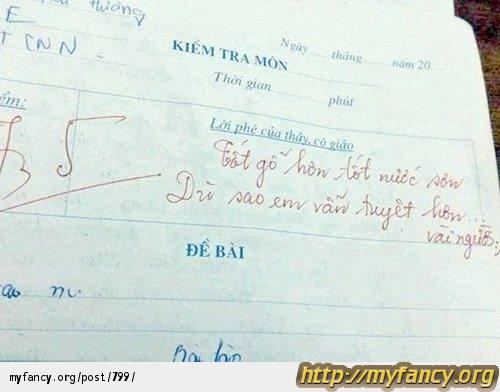 thương
E
KIỂM TRA MÔN
Ngày tháng năm 20
Thời gian phút
Lời phê của thầy, cô giáo
5
Tốt gỗ hơn tốt nước sơn
Dù sao em vẫn tuyệt hơn...
vài người;
ĐỀ BÀI
Bài làm
myfancy.org/post/799/
http://myfancy.org